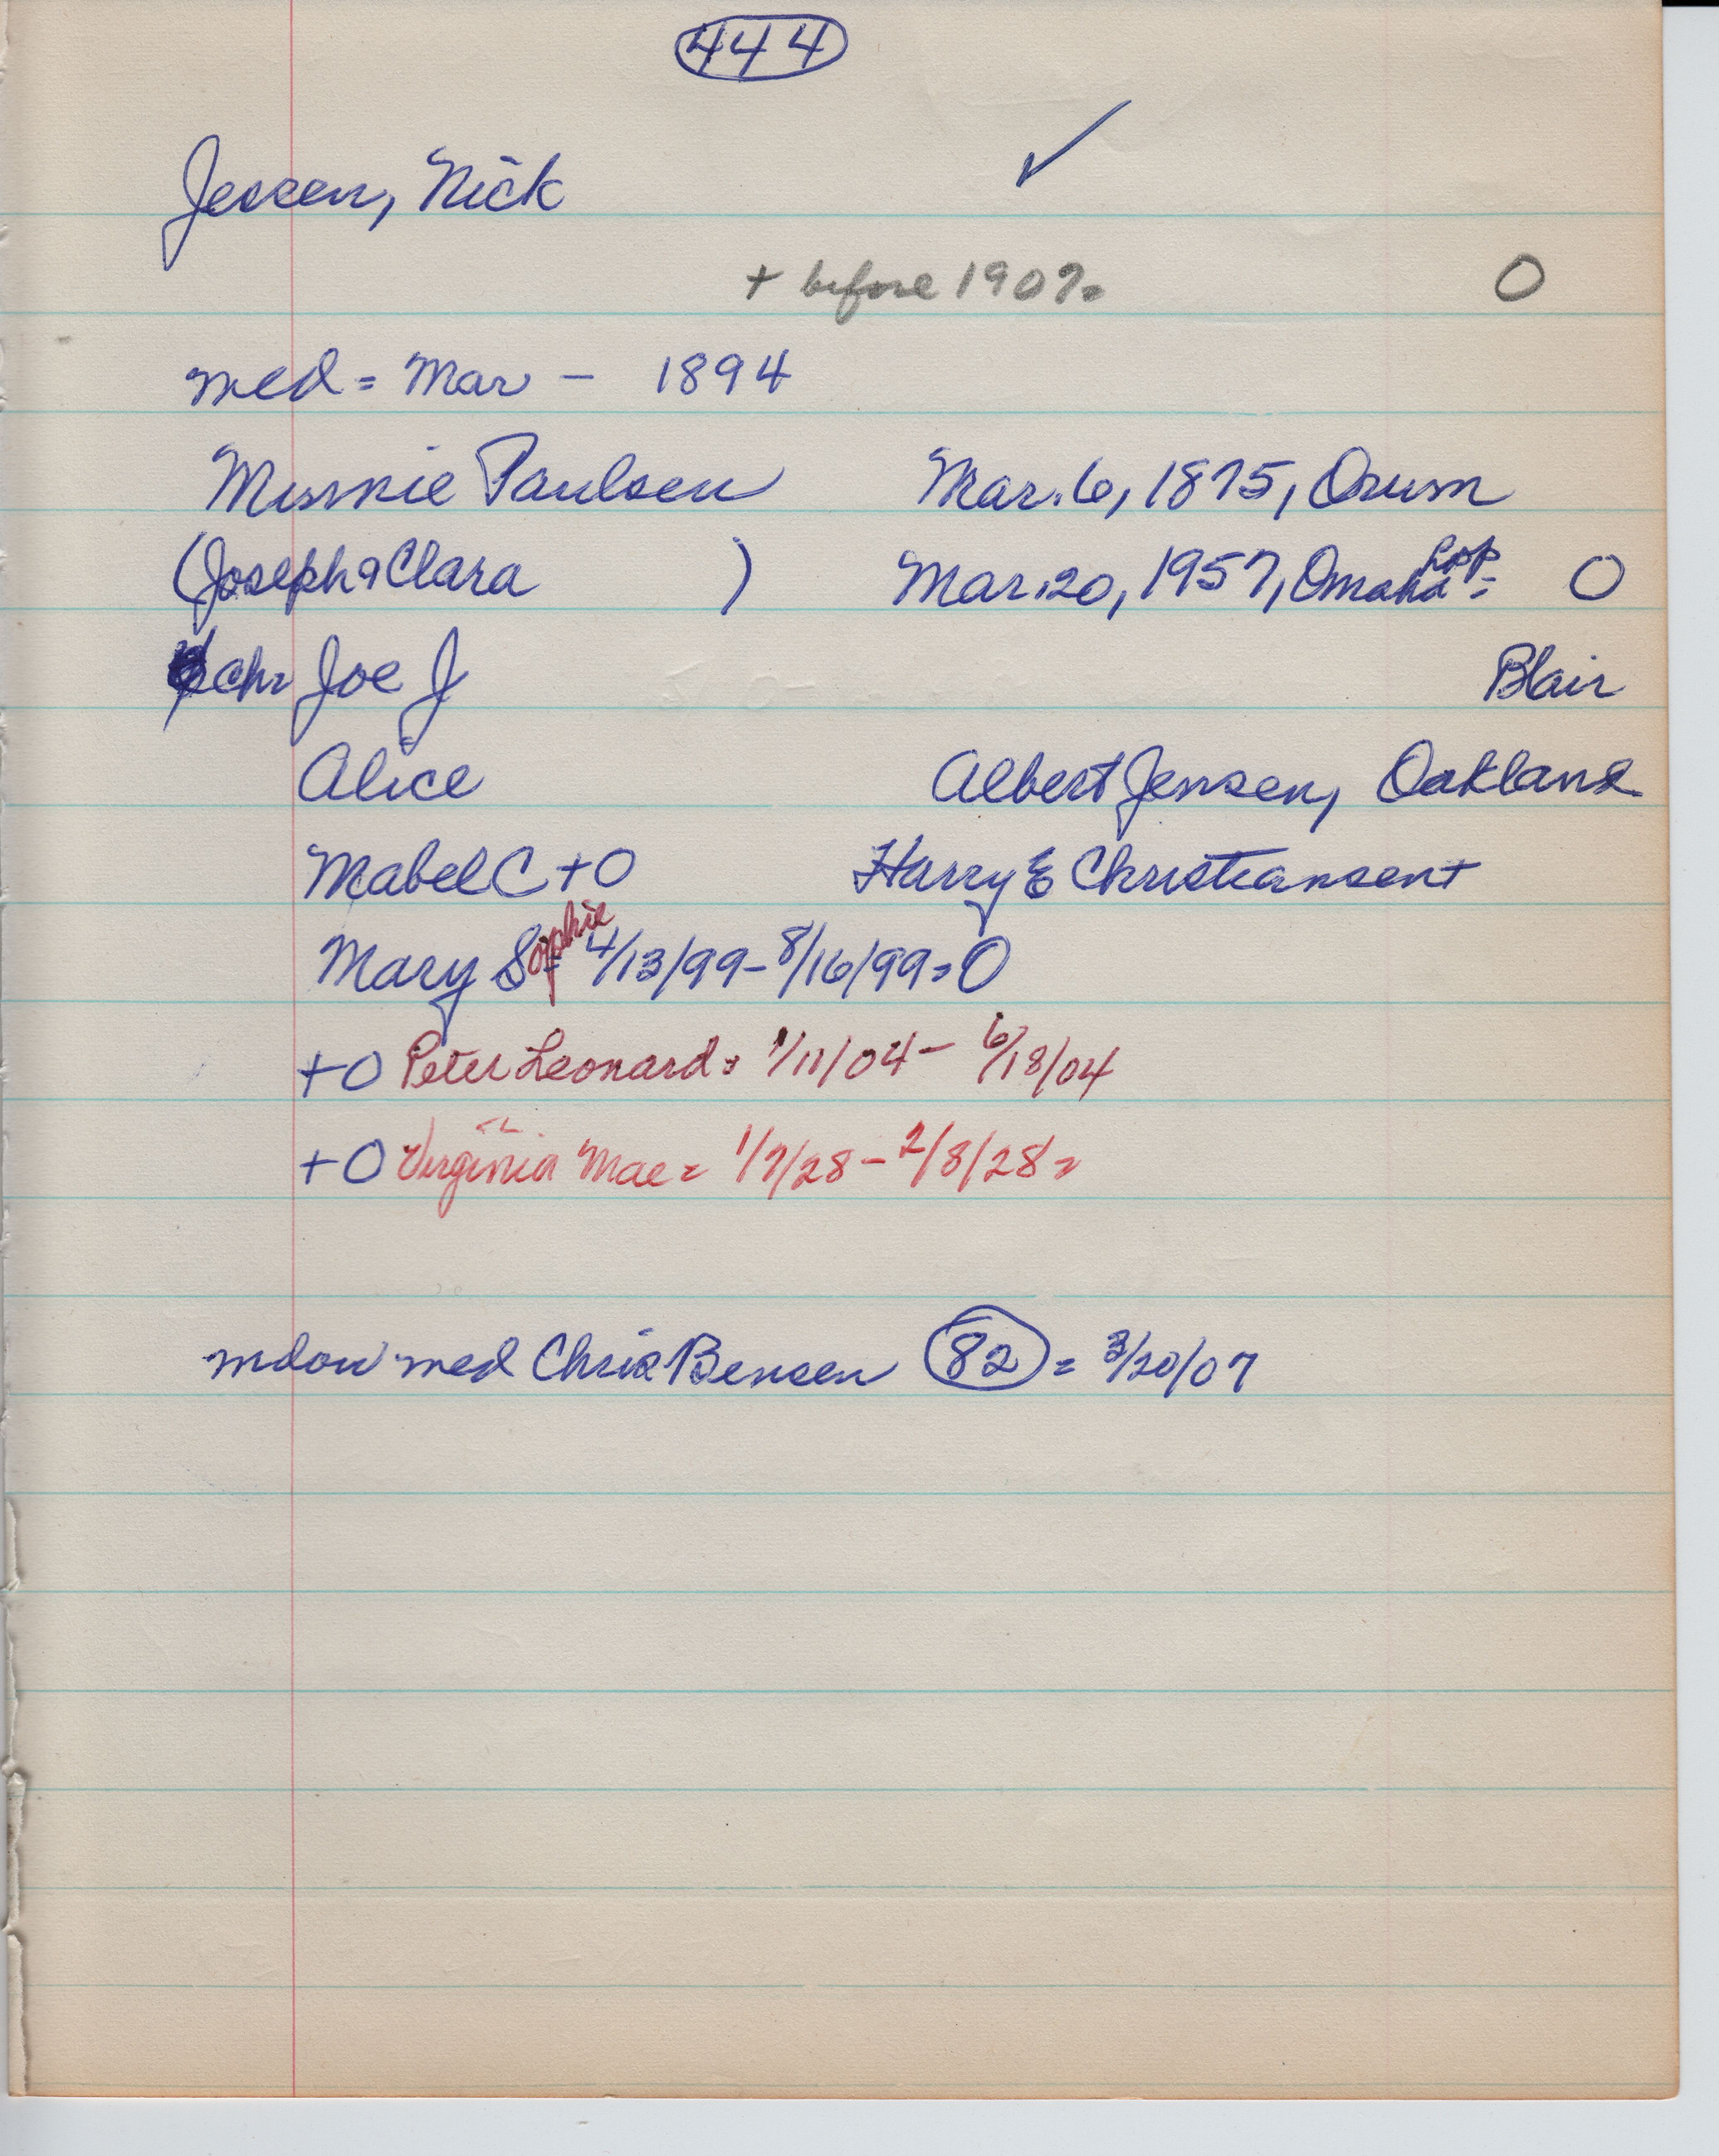 444
✓
Jessen, Nick
+ before 1907= O
med = Mar - 1894
Minnie Paulsen Mar. 6, 1875, Orum
(Joseph & Clara ) Mar. 20, 1957, Omaha Hosp= O
chr Joe J Blair
Alice Albert Jensen, Oakland
Mabel C + O Harry E Christiansen +
Mary Sophie = 4/13/99 - 8/16/99 = O
+ O Peter Leonard = 1/11/04 - 6/18/04
+ O Virginia Mae = 1/7/28 - 2/8/28 =
med Chris Bensen 82 = 3/20/07